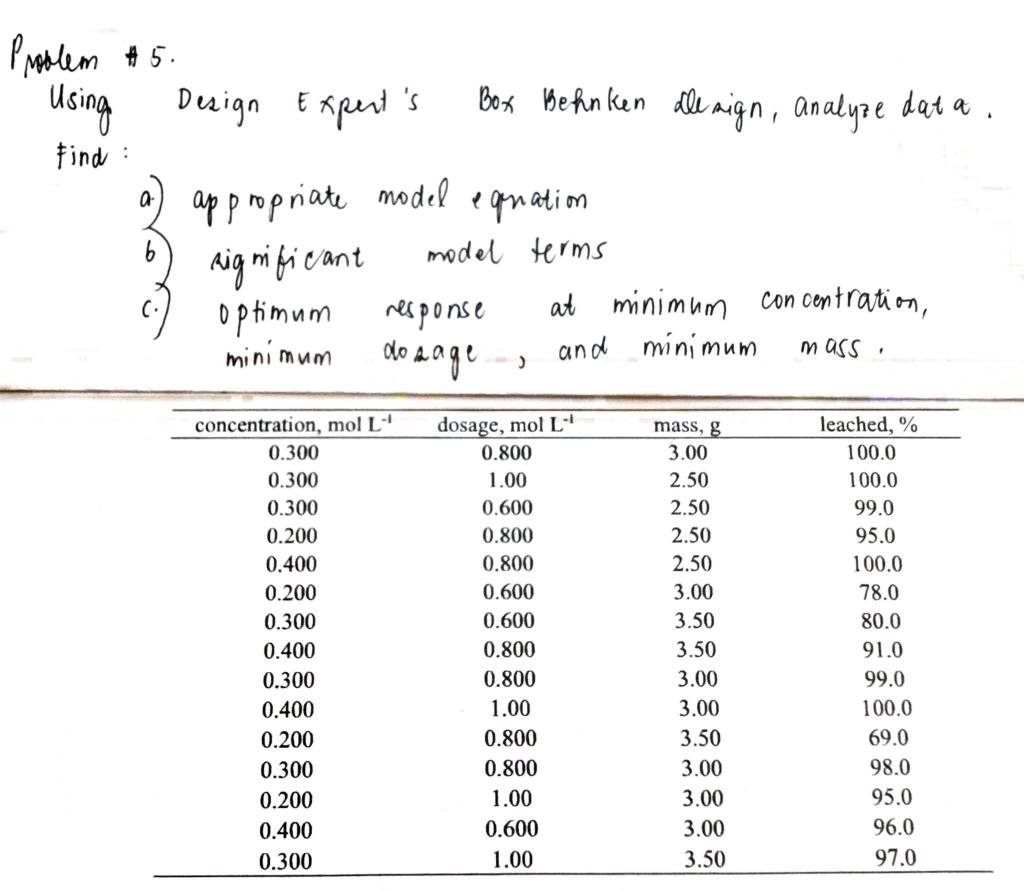 Problem # 5.
Using Design Expert's Box Behnken design, analyze data.
Find :
a) appropriate model equation
b) significant model terms
c.) optimum response at minimum concentration,
minimum dosage, and minimum mass.
concentration, mol L⁻¹ dosage, mol L⁻¹ mass, g leached, %
0.300 0.800 3.00 100.0
0.300 1.00 2.50 100.0
0.300 0.600 2.50 99.0
0.200 0.800 2.50 95.0
0.400 0.800 2.50 100.0
0.200 0.600 3.00 78.0
0.300 0.600 3.50 80.0
0.400 0.800 3.50 91.0
0.300 0.800 3.00 99.0
0.400 1.00 3.00 100.0
0.200 0.800 3.50 69.0
0.300 0.800 3.00 98.0
0.200 1.00 3.00 95.0
0.400 0.600 3.00 96.0
0.300 1.00 3.50 97.0